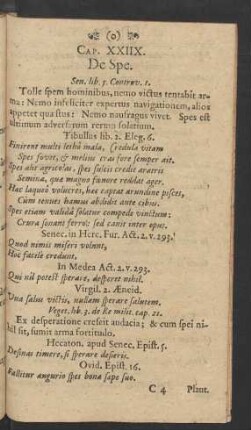 (o)
CAP. XXIIX.
De Spe.
Sen. lib. 5. Controv. 1.
Tolle spem hominibus, nemo victus tentabit ar-
ma: Nemo infeliciter expertus navigationem, alios
appetet quæstus: Nemo naufragus vivet. Spes est
ultimum adversarum rerum solatium.
Tibullus lib. 2. Eleg. 6.
Finirent multi letho mala, credula vitam
Spes fovet, & melius cras fore semper ait.
Spes alit agricolas, spes sulcis credit aratris
Semina, quæ magno fœnore reddat ager.
Hæc laqueo volucres, hæc captat arundine pisces,
Cum tenues hamus abdidit ante cibus.
Spes etiam valida solatur compede vinctum:
Crura sonant ferro: sed canit inter opus.
Senec. in Herc. Fur. Act. 2. v. 293.
Quod nimis miseri volunt,
Hoc facile credunt.
In Medea Act. 2. v. 293.
Qui nil potest sperare, desperet nihil.
Virgil. 2. Æneid.
Una salus victis, nullam sperare salutem.
Veget. lib. 3. de Re milit. cap. 21.
Ex desperatione crescit audacia; & cum spei ni-
hil sit, sumit arma fortitudo.
Hecaton. apud Senec. Epist. 5.
Desines timere, si sperare desieris.
Ovid. Epist. 16.
Fallitur augurio spes bona sæpe suo.
C 4 Plaut.